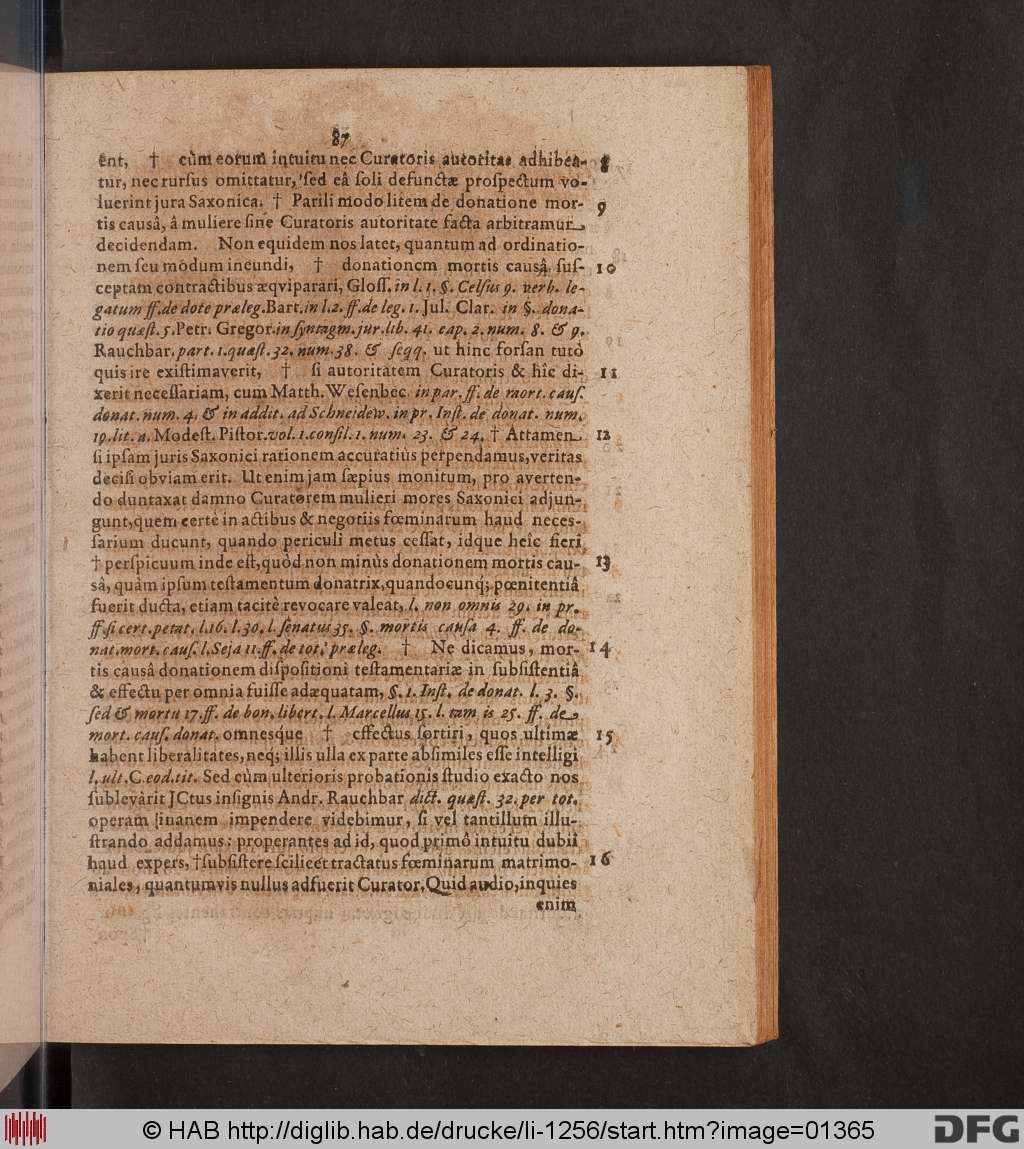 87
ent, † cùm eorum intuitu nec Curatoris autoritas adhibea- 8
tur, nec rursus omittatur, sed eâ soli defunctæ prospectum vo-
luerint jura Saxonica. † Parili modo litem de donatione mor- 9
tis causâ, â muliere sine Curatoris autoritate facta arbitramur
decidendam. Non equidem nos latet, quantum ad ordinatio-
nem seu modum ineundi, † donationem mortis causâ sus- 10
ceptam contractibus æqviparari, Gloss. in l. 1. §. Celsus 9. verb. le-
gatum ff. de dote præleg. Bart. in l. 2. ff. de leg. 1. Jul. Clar. in §. dona-
tio quæst. 5. Petr. Gregor. in syntagm. jur. lib. 41. cap. 2. num. 8. & 9.
Rauchbar. part. 1. quæst. 32. num. 38. & seqq. ut hinc forsan tutò
quis ire existimaverit, † si autoritatem Curatoris & hîc di- 11
xerit necessariam, cum Matth. Wesenbec. in par. ff. de mort. caus.
donat. num. 4. & in addit. ad Schneidew. in pr. Inst. de donat. num.
19. lit. a. Modest. Pistor. vol. 1. consil. 1. num. 23. & 24. † Attamen 12
si ipsam juris Saxonici rationem accuratiùs perpendamus, veritas
decisi obviam erit. Ut enim jam sæpius monitum, pro averten-
do duntaxat damno Curatorem mulieri mores Saxonici adjun-
gunt, quem certè in actibus & negotiis fœminarum haud neces-
sarium ducunt, quando periculi metus cessat, idque heîc fieri
† perspicuum inde est, quòd non minùs donationem mortis cau- 13
sâ, quàm ipsum testamentum donatrix, quandocunq; pœnitentiâ
fuerit ducta, etiam tacitè revocare valeat, l. non omnis 29. in pr.
ff. si cert. petat. l. 16. l. 30. l. senatus 35. §. mortis causa 4. ff. de do-
nat. mort. caus. l. Seja 11. ff. de tot. præleg. † Ne dicamus, mor- 14
tis causâ donationem dispositioni testamentariæ in subsistentiâ
& effectu per omnia fuisse adæquatam, §. 1. Inst. de donat. l. 3. §.
sed & mortu 17. ff. de bon. libert. l. Marcellus 15. l. tam is 25. ff. de
mort. caus. donat. omnesque † effectus sortiri, quos ultimæ 15
habent liberalitates, neq; illis ulla ex parte absimiles esse intelligi
l. ult. C. eod. tit. Sed cùm ulterioris probationis studio exacto nos
sublevârit JCtus insignis Andr. Rauchbar dict. quæst. 32. per tot.
operam inanem impendere videbimur, si vel tantillum illu-
strando addamus: properantes ad id, quod primô intuitu dubii
haud expers, † subsistere scilicet tractatus fœminarum matrimo- 16
niales, quantumvis nullus adfuerit Curator. Quid audio, inquies
enim
© HAB http://diglib.hab.de/drucke/li-1256/start.htm?image=01365
DFG